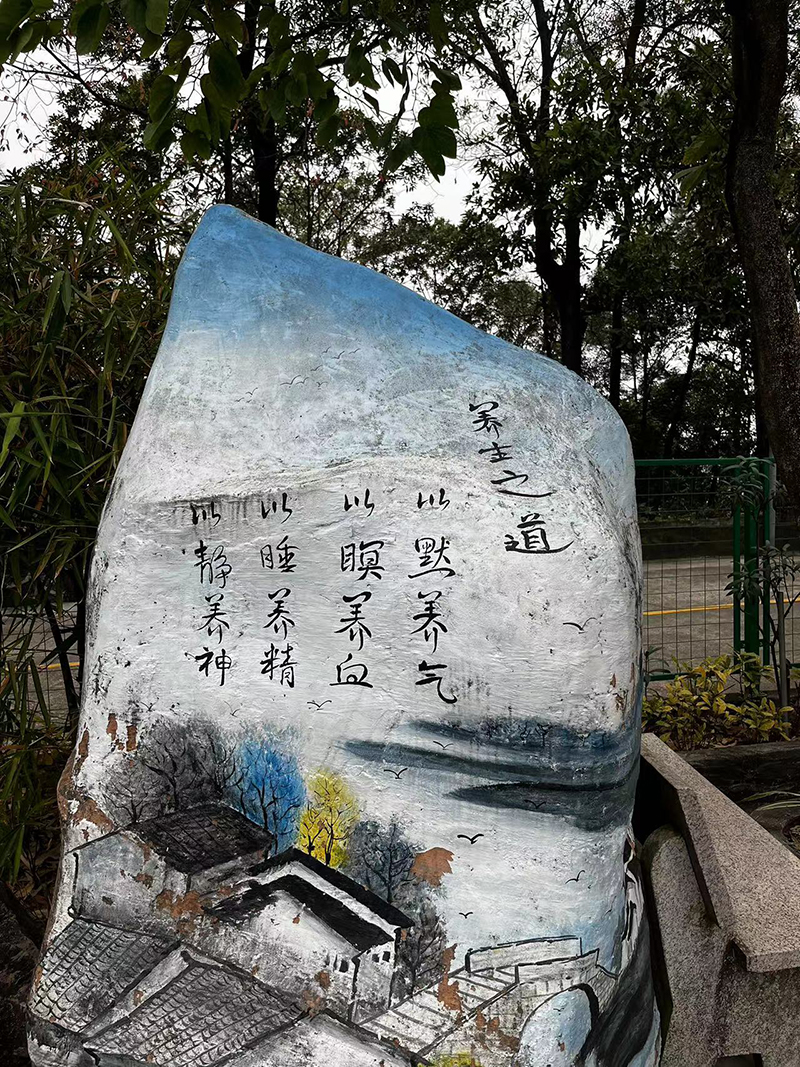 养生之道
以默养气
以瞑养血
以睡养精
以静养神